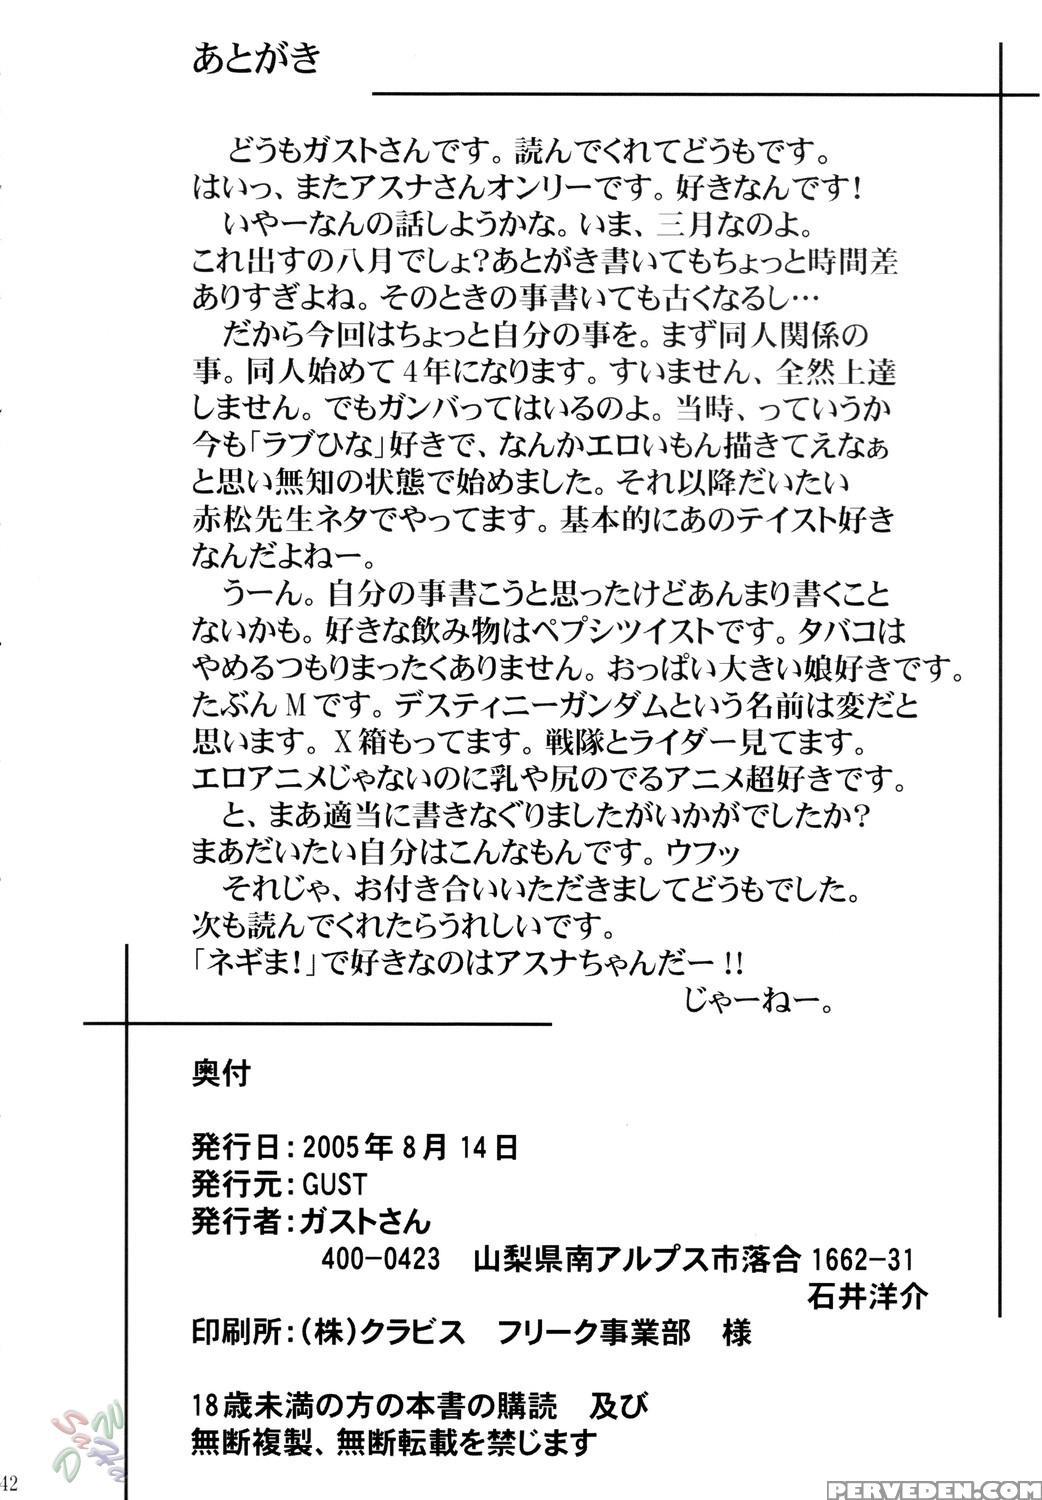 あとがき
どうもガストさんです。読んでくれてどうもです。
はいっ、またアスナさんオンリーです。好きなんです!
いやーなんの話しようかな。いま、三月なのよ。
これ出すの八月でしょ?あとがき書いてもちょっと時間差
ありすぎよね。そのときの事書いても古くなるし…
だから今回はちょっと自分の事を。まず同人関係の
事。同人始めて4年になります。すいません、全然上達
しません。でもガンバってはいるのよ。当時、っていうか
今も「ラブひな」好きで、なんかエロいもん描きてえなぁ
と思い無知の状態で始めました。それ以降だいたい
赤松先生ネタでやってます。基本的にあのテイスト好き
なんだよねー。
うーん。自分の事書こうと思ったけどあんまり書くこと
ないかも。好きな飲み物はペプシツイストです。タバコは
やめるつもりまったくありません。おっぱい大きい娘好きです。
たぶんMです。デスティニーガンダムという名前は変だと
思います。X箱もってます。戦隊とライダー見てます。
エロアニメじゃないのに乳や尻のでるアニメ超好きです。
と、まあ適当に書きなぐりましたがいかがでしたか?
まあだいたい自分はこんなもんです。ウフッ
それじゃ、お付き合いいただきましてどうもでした。
次も読んでくれたらうれしいです。
「ネギま!」で好きなのはアスナちゃんだー!!
じゃーねー。
奥付
発行日:2005年8月14日
発行元:GUST
発行者:ガストさん
400-0423 山梨県南アルプス市落合1662-31
石井洋介
印刷所:(株)クラビス フリーク事業部 様
18歳未満の方の本書の購読 及び
無断複製、無断転載を禁じます
42
PERVEDEN.COM